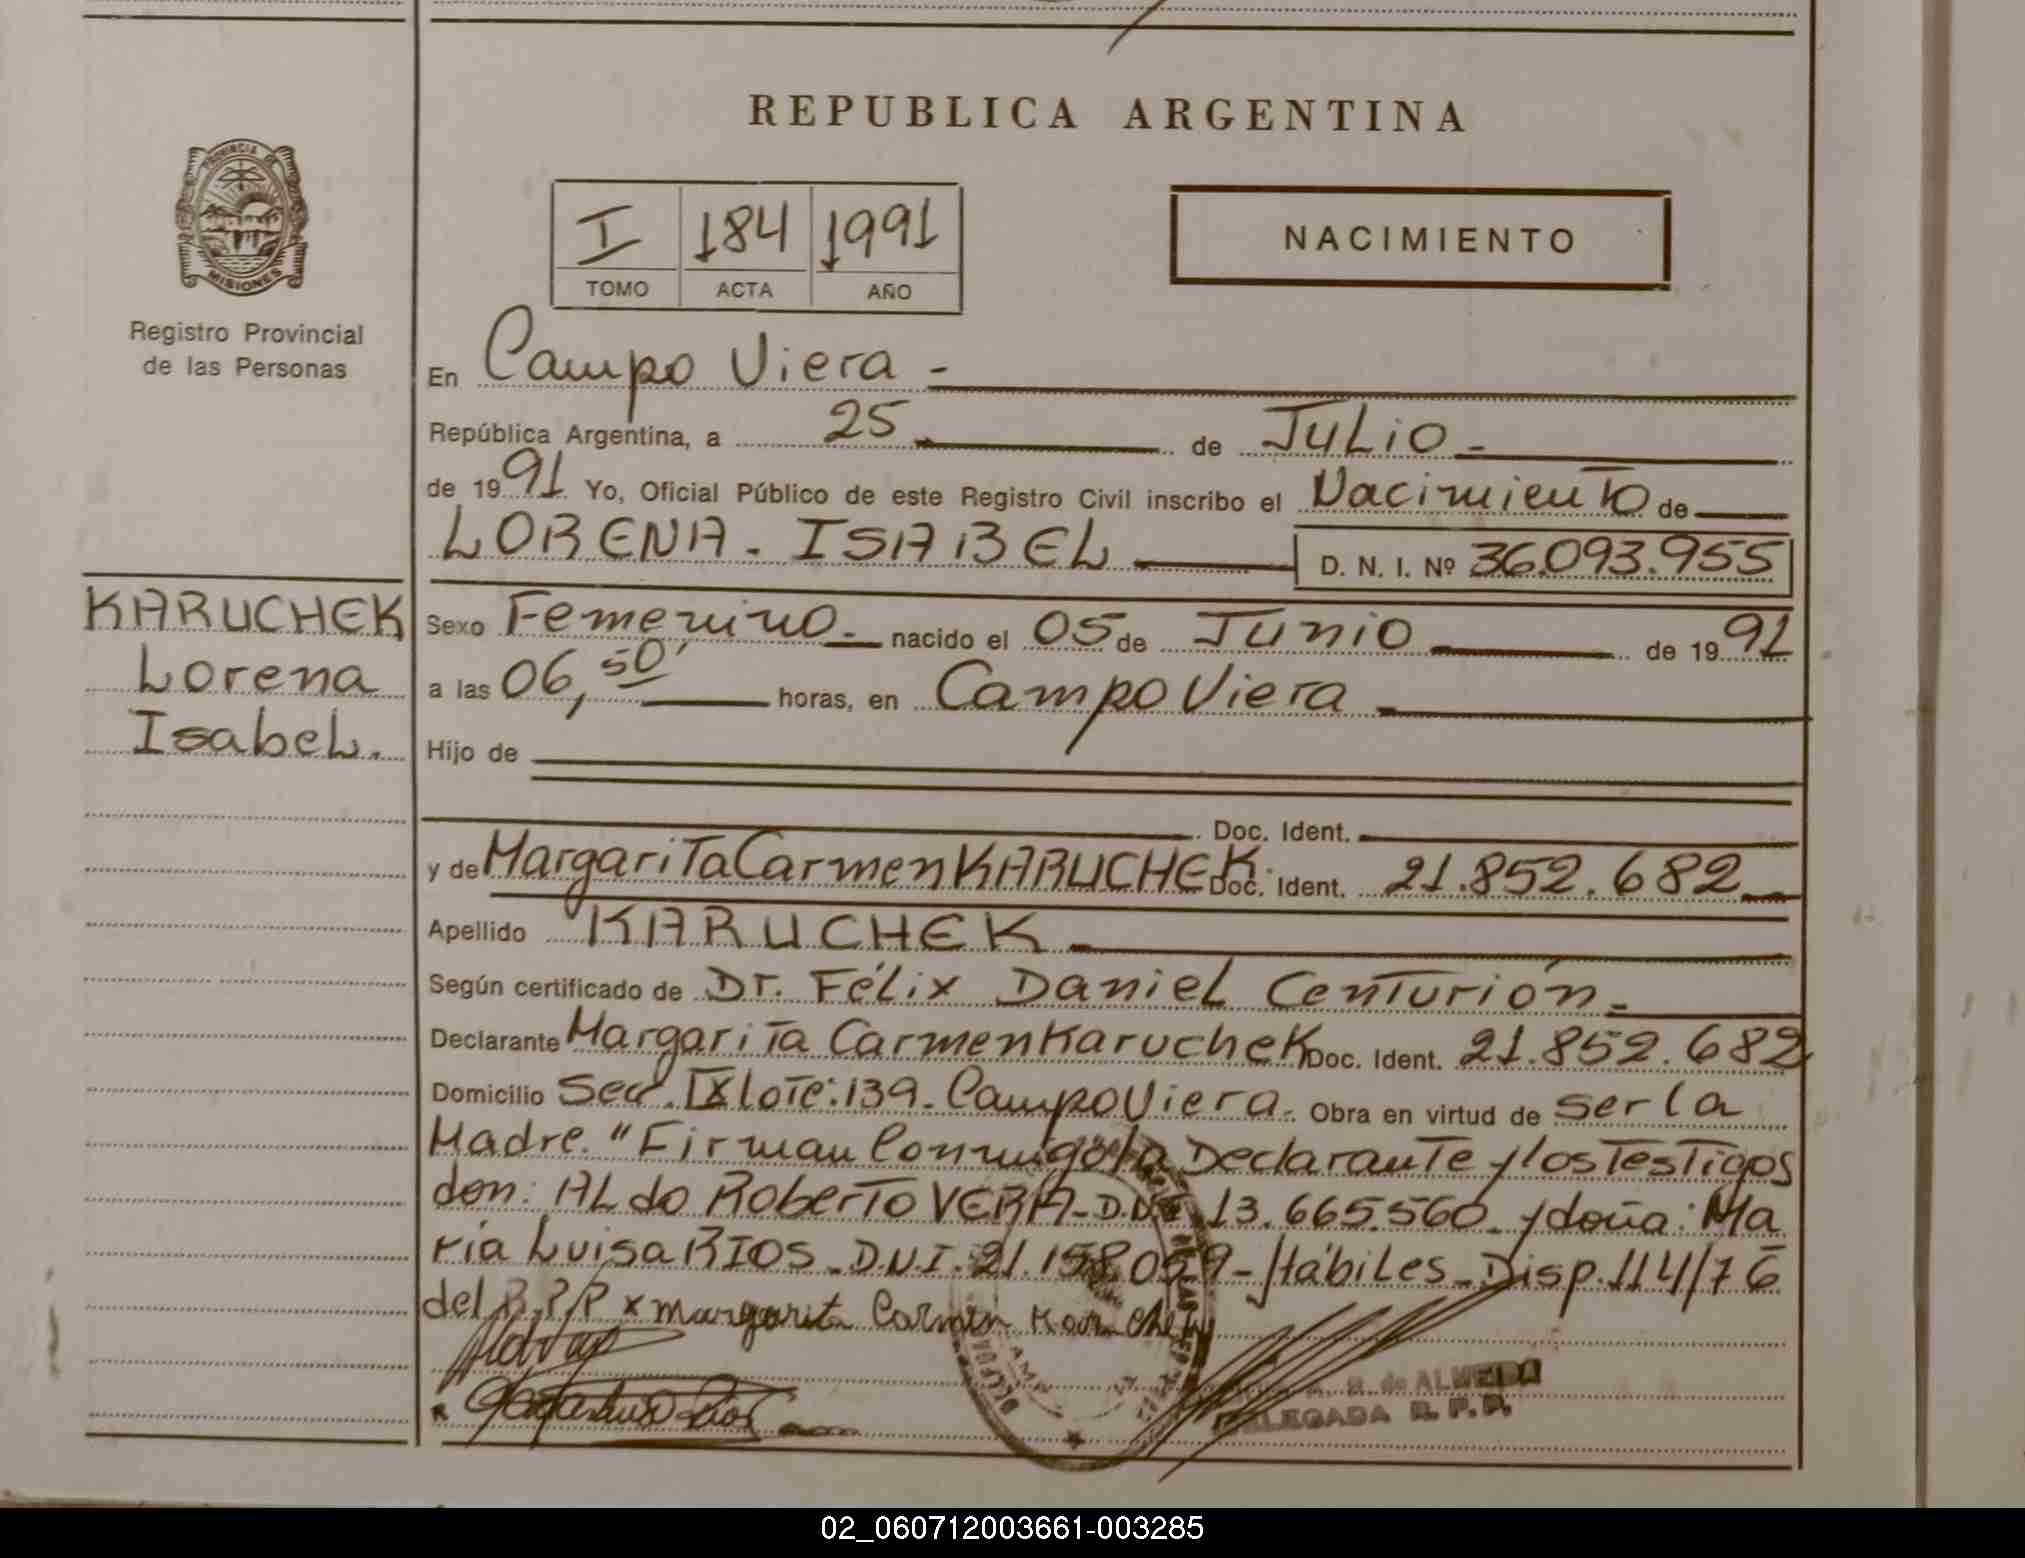 REPUBLICA ARGENTINA
PROVINCIA DE
MISIONES
Registro Provincial
de las Personas
I 184 1991
TOMO ACTA AÑO
NACIMIENTO
KARUCHEK
Lorena
Isabel.
En Campo Viera -
República Argentina, a 25 de Julio -
de 1991 Yo, Oficial Público de este Registro Civil inscribo el Nacimiento de
LORENA - ISABEL D. N. I. Nº 36.093.955
Sexo Femenino - nacido el 05 de Junio de 1991
a las 06,50' horas, en Campo Viera
Hijo de
Doc. Ident.
y de Margarita Carmen KARUCHEK Doc. Ident. 21.852.682
Apellido KARUCHEK
Según certificado de Dr. Félix Daniel Centurión -
Declarante Margarita Carmen Karuchek Doc. Ident. 21.852.682
Domicilio Sec. IX Lote: 139 - Campo Viera - Obra en virtud de ser la
Madre. "Firman Conmigo la Declarante y los Testigos
don: ALdo Roberto VERA - D.N.I. 13.665.560 y doña: Ma
ria Luisa RIOS - D.N.I. 21.158.059 - Hábiles - Disp. 114/76
del R.P.P x Margarita Carmen Karuchek
de ALMEIDA
DELEGADA R. P. P.
02_060712003661-003285